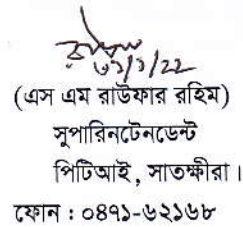 ৩১/১/২২
(এস এম রাউফার রহিম)
সুপারিনটেনডেন্ট
পিটিআই, সাতক্ষীরা।
ফোন : ০৪৭১-৬২১৬৮